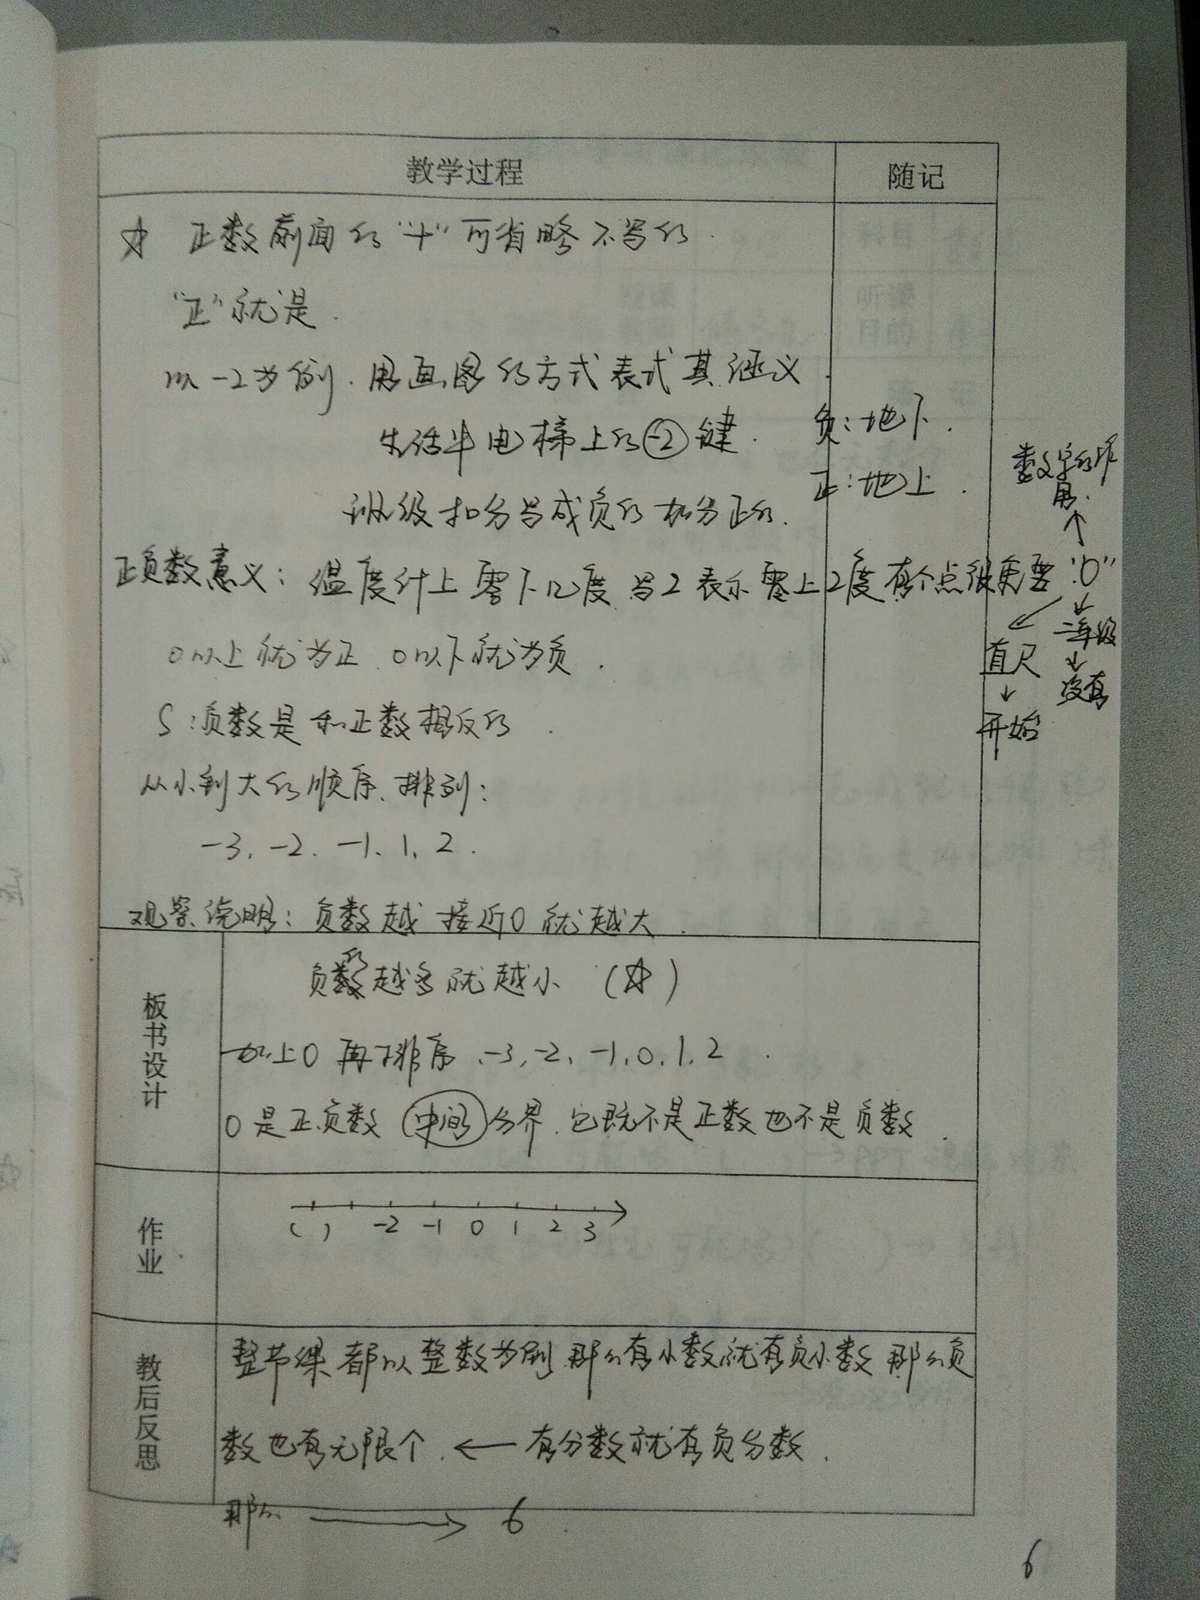 教学过程
随记
☆ 正数前面的“+”可省略不写的.
“正”就是.
以-2为例.用画图的方式表式其涵义.
生活中电梯上的-2键.
负:地下.
正:地上.
班级扣分写成负的 加分正的.
数字的作用.
正负数意义:温度计上零下几度 写2表示零上2度 有个点很重要“0”
直尺
↓
开始
二年级
↓
没有
0以上就为正 0以下就为负.
S:负数是和正数相反的.
从小到大的顺序.排列:
-3、-2、-1、1、2.
观察说明:负数越接近0就越大.
板书设计
负的越多就越小(☆)
加上0再排序、-3,-2、-1,0,1,2.
0是正负数中间分界.它既不是正数也不是负数.
作业
( ) -2 -1 0 1 2 3
教后反思
整节课都以整数为例 那么有小数就有负小数 那么负
数也有无限个.← 有分数就有负分数.
那么 → 6
6